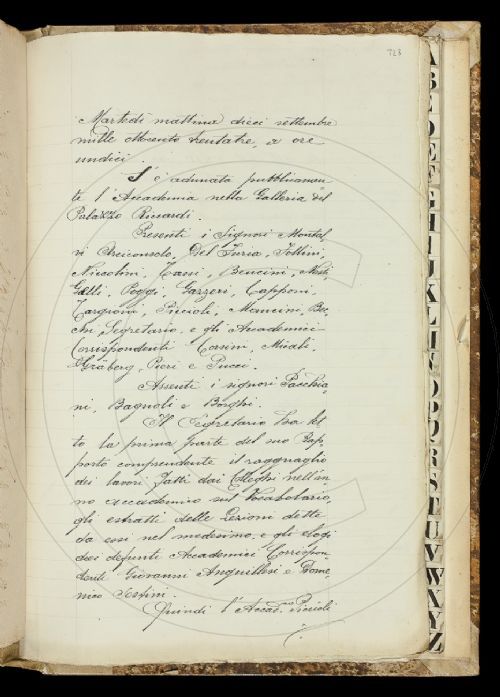 723
Martedì mattina dieci settembre
mille ottocento trentatre, a ore
undici.
S'è adunata pubblicamen-
te l'Accademia nella Galleria del
Palazzo Riccardi.
Presenti i Signori Montal-
vi Arciconsolo, Del Furia, Follini,
Niccolini, Tassi, Bencini,
Poggi, Gazzeri, Capponi,
Targioni, Piccioli, Mancini, Bec-
chi, Segretario, e gli Accademici
Corrispondenti Corsini, Micali,
Gräberg, Pieri e Pucci.
Assenti i signori Pacchia-
ni, Bagnoli e Borghi.
Il Segretario ha let-
to la prima parte del suo Rap-
porto comprendente il ragguaglio
dei lavori fatti dai Colleghi nell'an-
no accademico sul Vocabolario,
gli estratti delle Lezioni dette
da essi nel medesimo, e gli elogi
dei defunti Accademici Corrispon-
denti Giovanni Anguillesi e Dome-
nico Sestini.
Quindi l'Accad.co Piccioli
A
B
C
D
E
F
G
H
I
J
K
L
M
N
O
P
Q
R
S
T
U
V
W
X
Y
Z